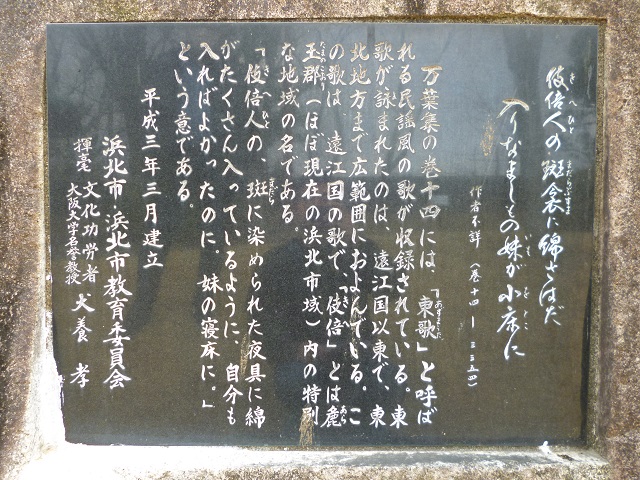 伎倍人の斑衾に綿さはだ
入りなましもの妹が小床に
作者不詳（巻十四ー三三五四）
万葉集の巻十四には、「東歌」と呼ば
れる民謡風の歌が収録されている。東
歌が詠まれたのは、遠江国以東で、東
北地方まで広範囲におよんでいる。こ
の歌は、遠江国の歌で、「伎倍」とは麁
玉郡（ほぼ現在の浜北市域）内の特別
な地域の名である。
「伎倍人の、斑に染められた夜具に綿
がたくさん入っているように、自分も
入ればよかったのに。妹の寝床に。」
という意である。
平成三年三月建立
浜北市・浜北市教育委員会
揮毫 文化功労者 大阪大学名誉教授 犬養 孝